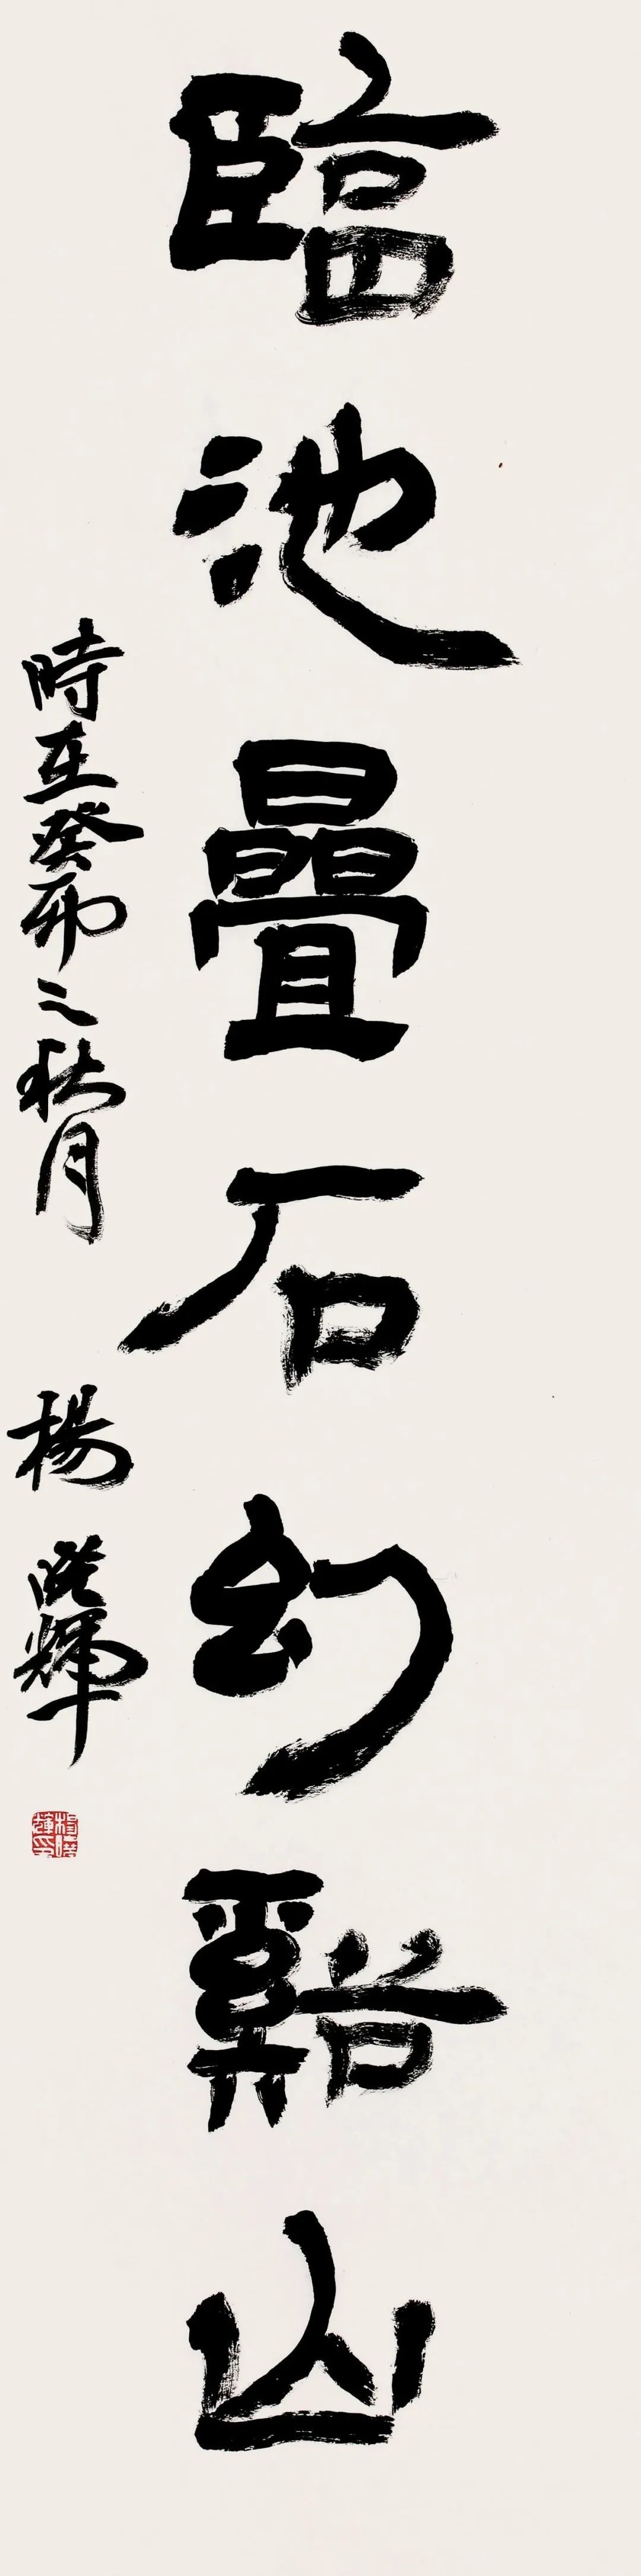 臨池疊石幻谿山
時在癸卯之秋月
楊曉輝